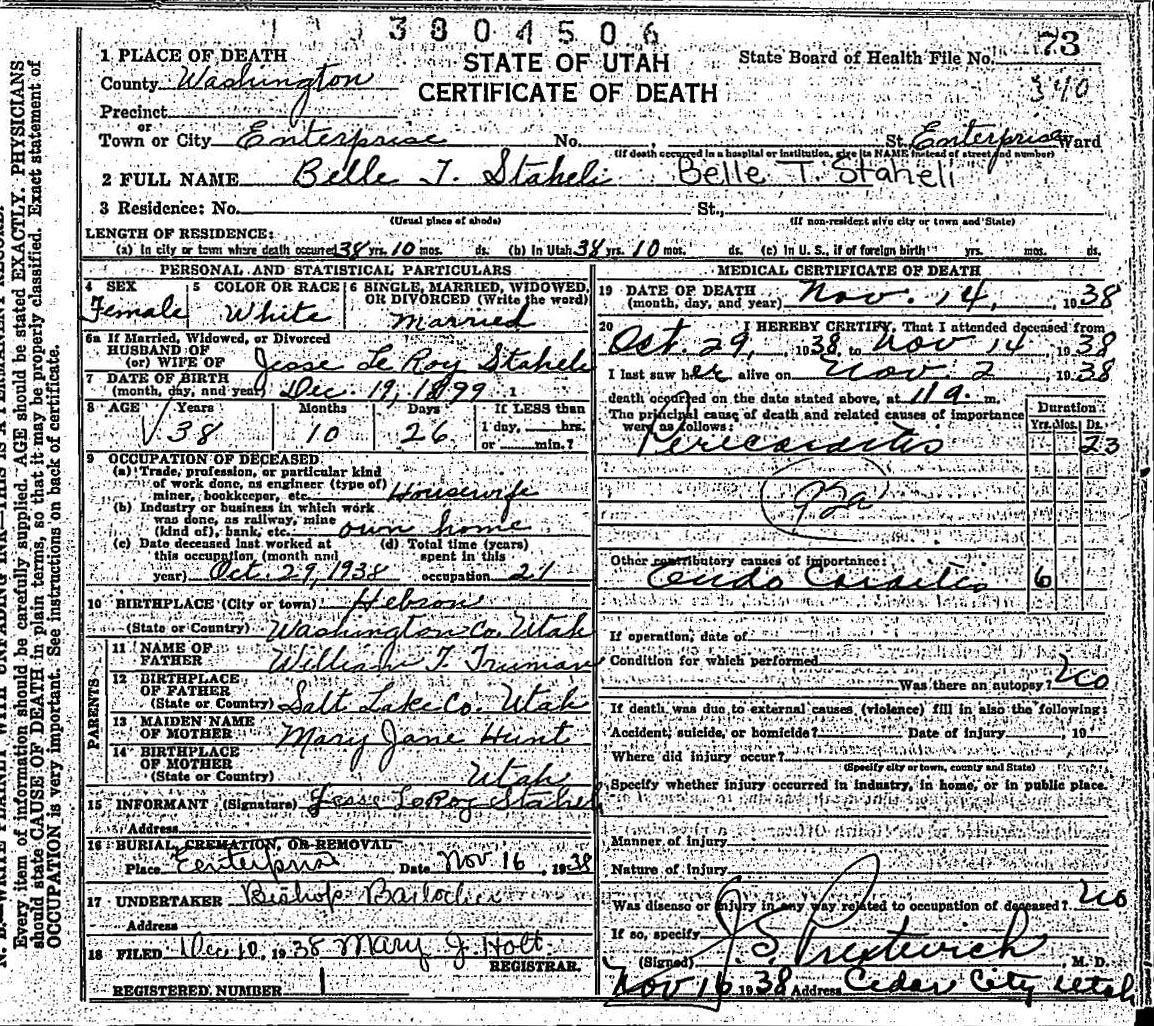 3804506
73
STATE OF UTAH
State Board of Health File No.
CERTIFICATE OF DEATH
340
1 PLACE OF DEATH
County Washington
Precinct
or
Town or City Enterprise No. , St. Enterprise Ward
(If death occurred in a hospital or institution, give its NAME instead of street and number)
2 FULL NAME Belle T. Staheli Belle T. Staheli
3 Residence: No. St.,
(Usual place of abode) (If non-resident give city or town and State)
LENGTH OF RESIDENCE:
(a) In city or town where death occurred 38 yrs. 10 mos. ds. (b) In Utah 38 yrs. 10 mos. ds. (c) In U. S., if of foreign birth yrs. mos. ds.
PERSONAL AND STATISTICAL PARTICULARS
4 SEX 5 COLOR OR RACE 6 SINGLE, MARRIED, WIDOWED,
OR DIVORCED (Write the word)
Female White Married
6a If Married, Widowed, or Divorced
HUSBAND OF
(or) WIFE OF Jesse Le Roy Staheli
7 DATE OF BIRTH
(month, day, and year) Dec. 19, 1899 1
8 AGE Years Months Days If LESS than
1 day, hrs.
or min.?
38 10 26
9 OCCUPATION OF DECEASED
(a) Trade, profession, or particular kind
of work done, as engineer (type of)
miner, bookkeeper, etc. Housewife
(b) Industry or business in which work
was done, as railway, mine
(kind of), bank, etc. own home
(c) Date deceased last worked at (d) Total time (years)
this occupation (month and spent in this
year) Oct. 29, 1938 occupation 21
10 BIRTHPLACE (City or town) Hebron
(State or Country) Washington Co. Utah
PARENTS
11 NAME OF
FATHER William T. Truman
12 BIRTHPLACE
OF FATHER
(State or Country) Salt Lake Co. Utah
13 MAIDEN NAME
OF MOTHER Mary Jane Hunt
14 BIRTHPLACE
OF MOTHER
(State or Country) Utah
15 INFORMANT (Signature) Jesse LeRoy Staheli
Address
16 BURIAL, CREMATION, OR REMOVAL
Place Date Nov 16, 1938
17 UNDERTAKER Bishop
Address
18 FILED Dec 10, 1938 Mary J. Holt
REGISTRAR.
REGISTERED NUMBER 1
MEDICAL CERTIFICATE OF DEATH
19 DATE OF DEATH
(month, day, and year) Nov. 14, 1938
20 I HEREBY CERTIFY, That I attended deceased from
Oct. 29, 1938 to Nov 14, 1938
I last saw her alive on Nov. 2, 1938
death occurred on the date stated above, at 11 a. m.
The principal cause of death and related causes of importance
were as follows:
Duration
Yrs. Mos. Ds.
Pericarditis 23
92a
Other contributory causes of importance:
Endo Carditis 6
If operation, date of
Condition for which performed
Was there an autopsy? No
If death was due to external causes (violence) fill in also the following:
Accident, suicide, or homicide? Date of injury , 19
Where did injury occur?
(Specify city or town, county and State)
Specify whether injury occurred in industry, in home, or in public place.
Manner of injury
Nature of injury
Was disease or injury in any way related to occupation of deceased? No
If so, specify
(Signed) J. S. Prestwich M. D.
Nov 16 1938 Address Cedar City Utah
N. B.—WRITE PLAINLY WITH UNFADING INK—THIS IS A PERMANENT RECORD.
Every item of information should be carefully supplied. AGE should be stated EXACTLY. PHYSICIANS
should state CAUSE OF DEATH in plain terms, so that it may be properly classified. Exact statement of
OCCUPATION is very important. See instructions on back of certificate.